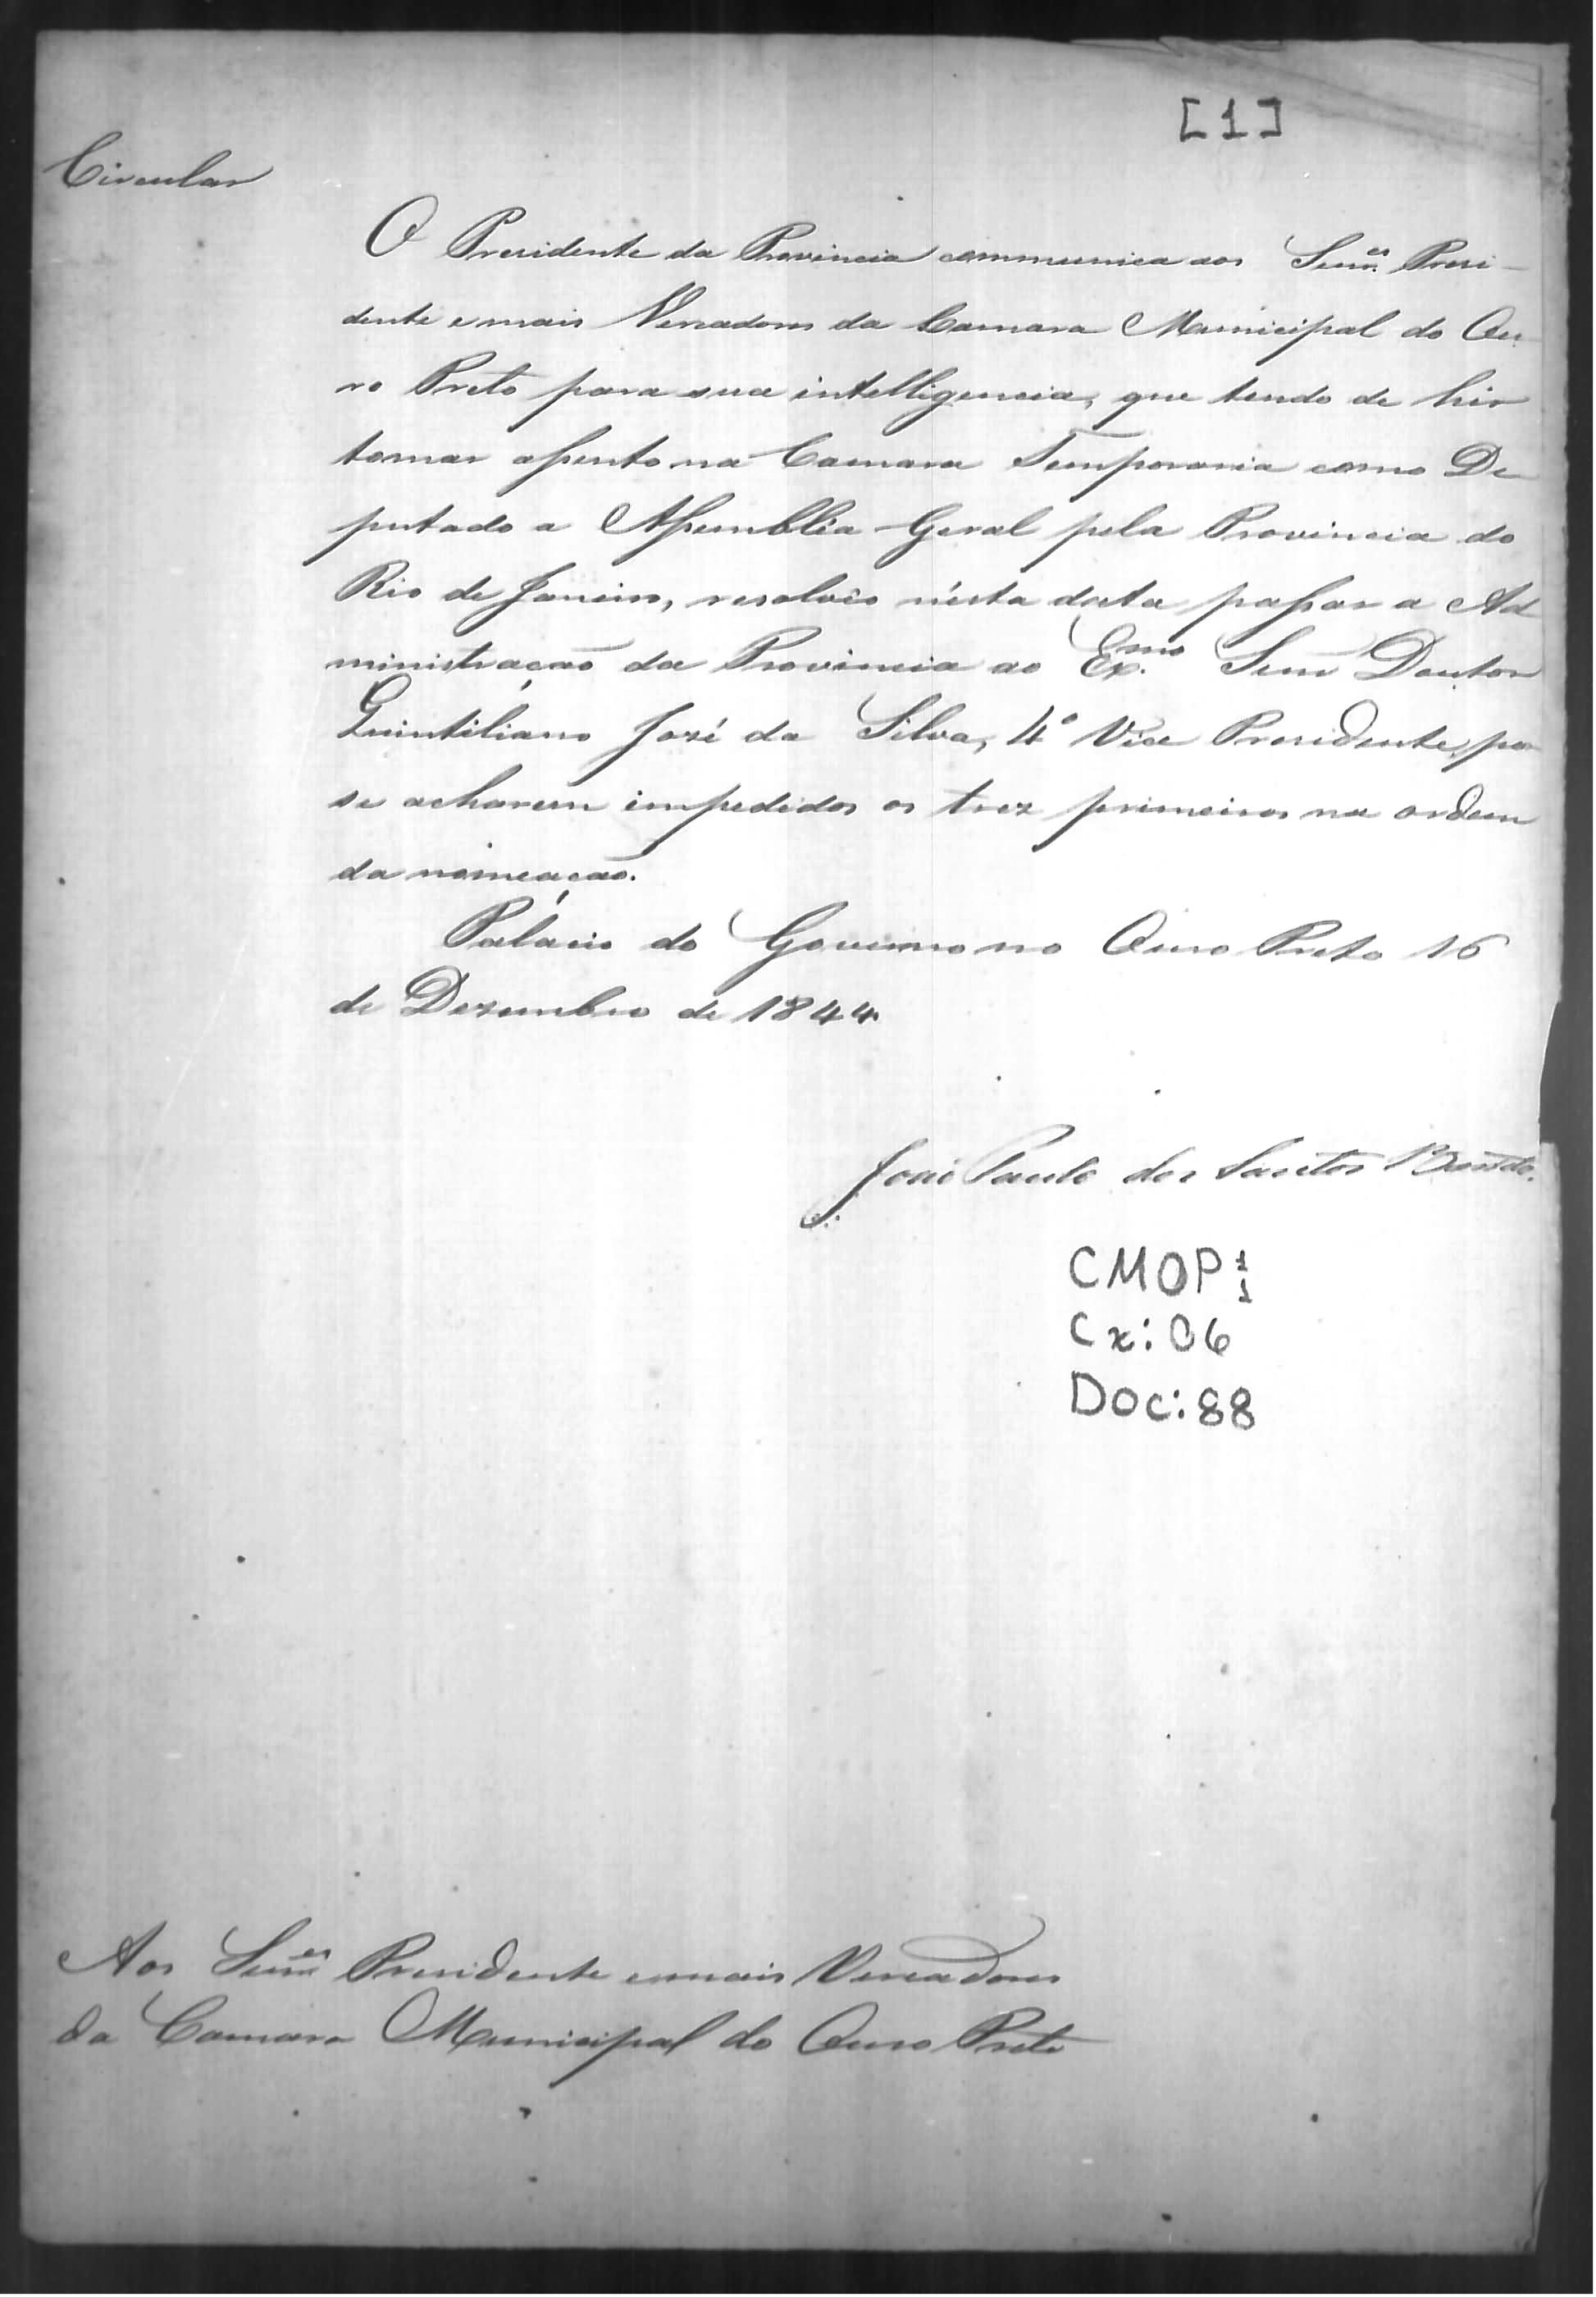 [1]
Circular
O Presidente da Provincia communica aos Senr.es Presi-
dente e mais Vereadores da Camara Municipal do Ou
ro Preto para sua intelligencia, que tendo de hir
tomar assento na Camara Temporaria como De
putado a Assembléa Geral pela Provincia do
Rio de Janeiro, resolvêo n'esta data passar a Ad
ministração da Provincia ao Ex.mo Senr Doutor
Quintiliano José da Silva, 4º Vice Presidente, por
se acharem impedidos os trez primeiros na ordem
da nomeação.
Palacio do Governo no Ouro Preto 16
de Dezembro de 1844
João Paulo dos Santos Barreto.
CMOP: 1
1
Cx: 06
Doc: 88
Aos Senr.es Presidente e mais Vereadores
da Camara Municipal do Ouro Preto